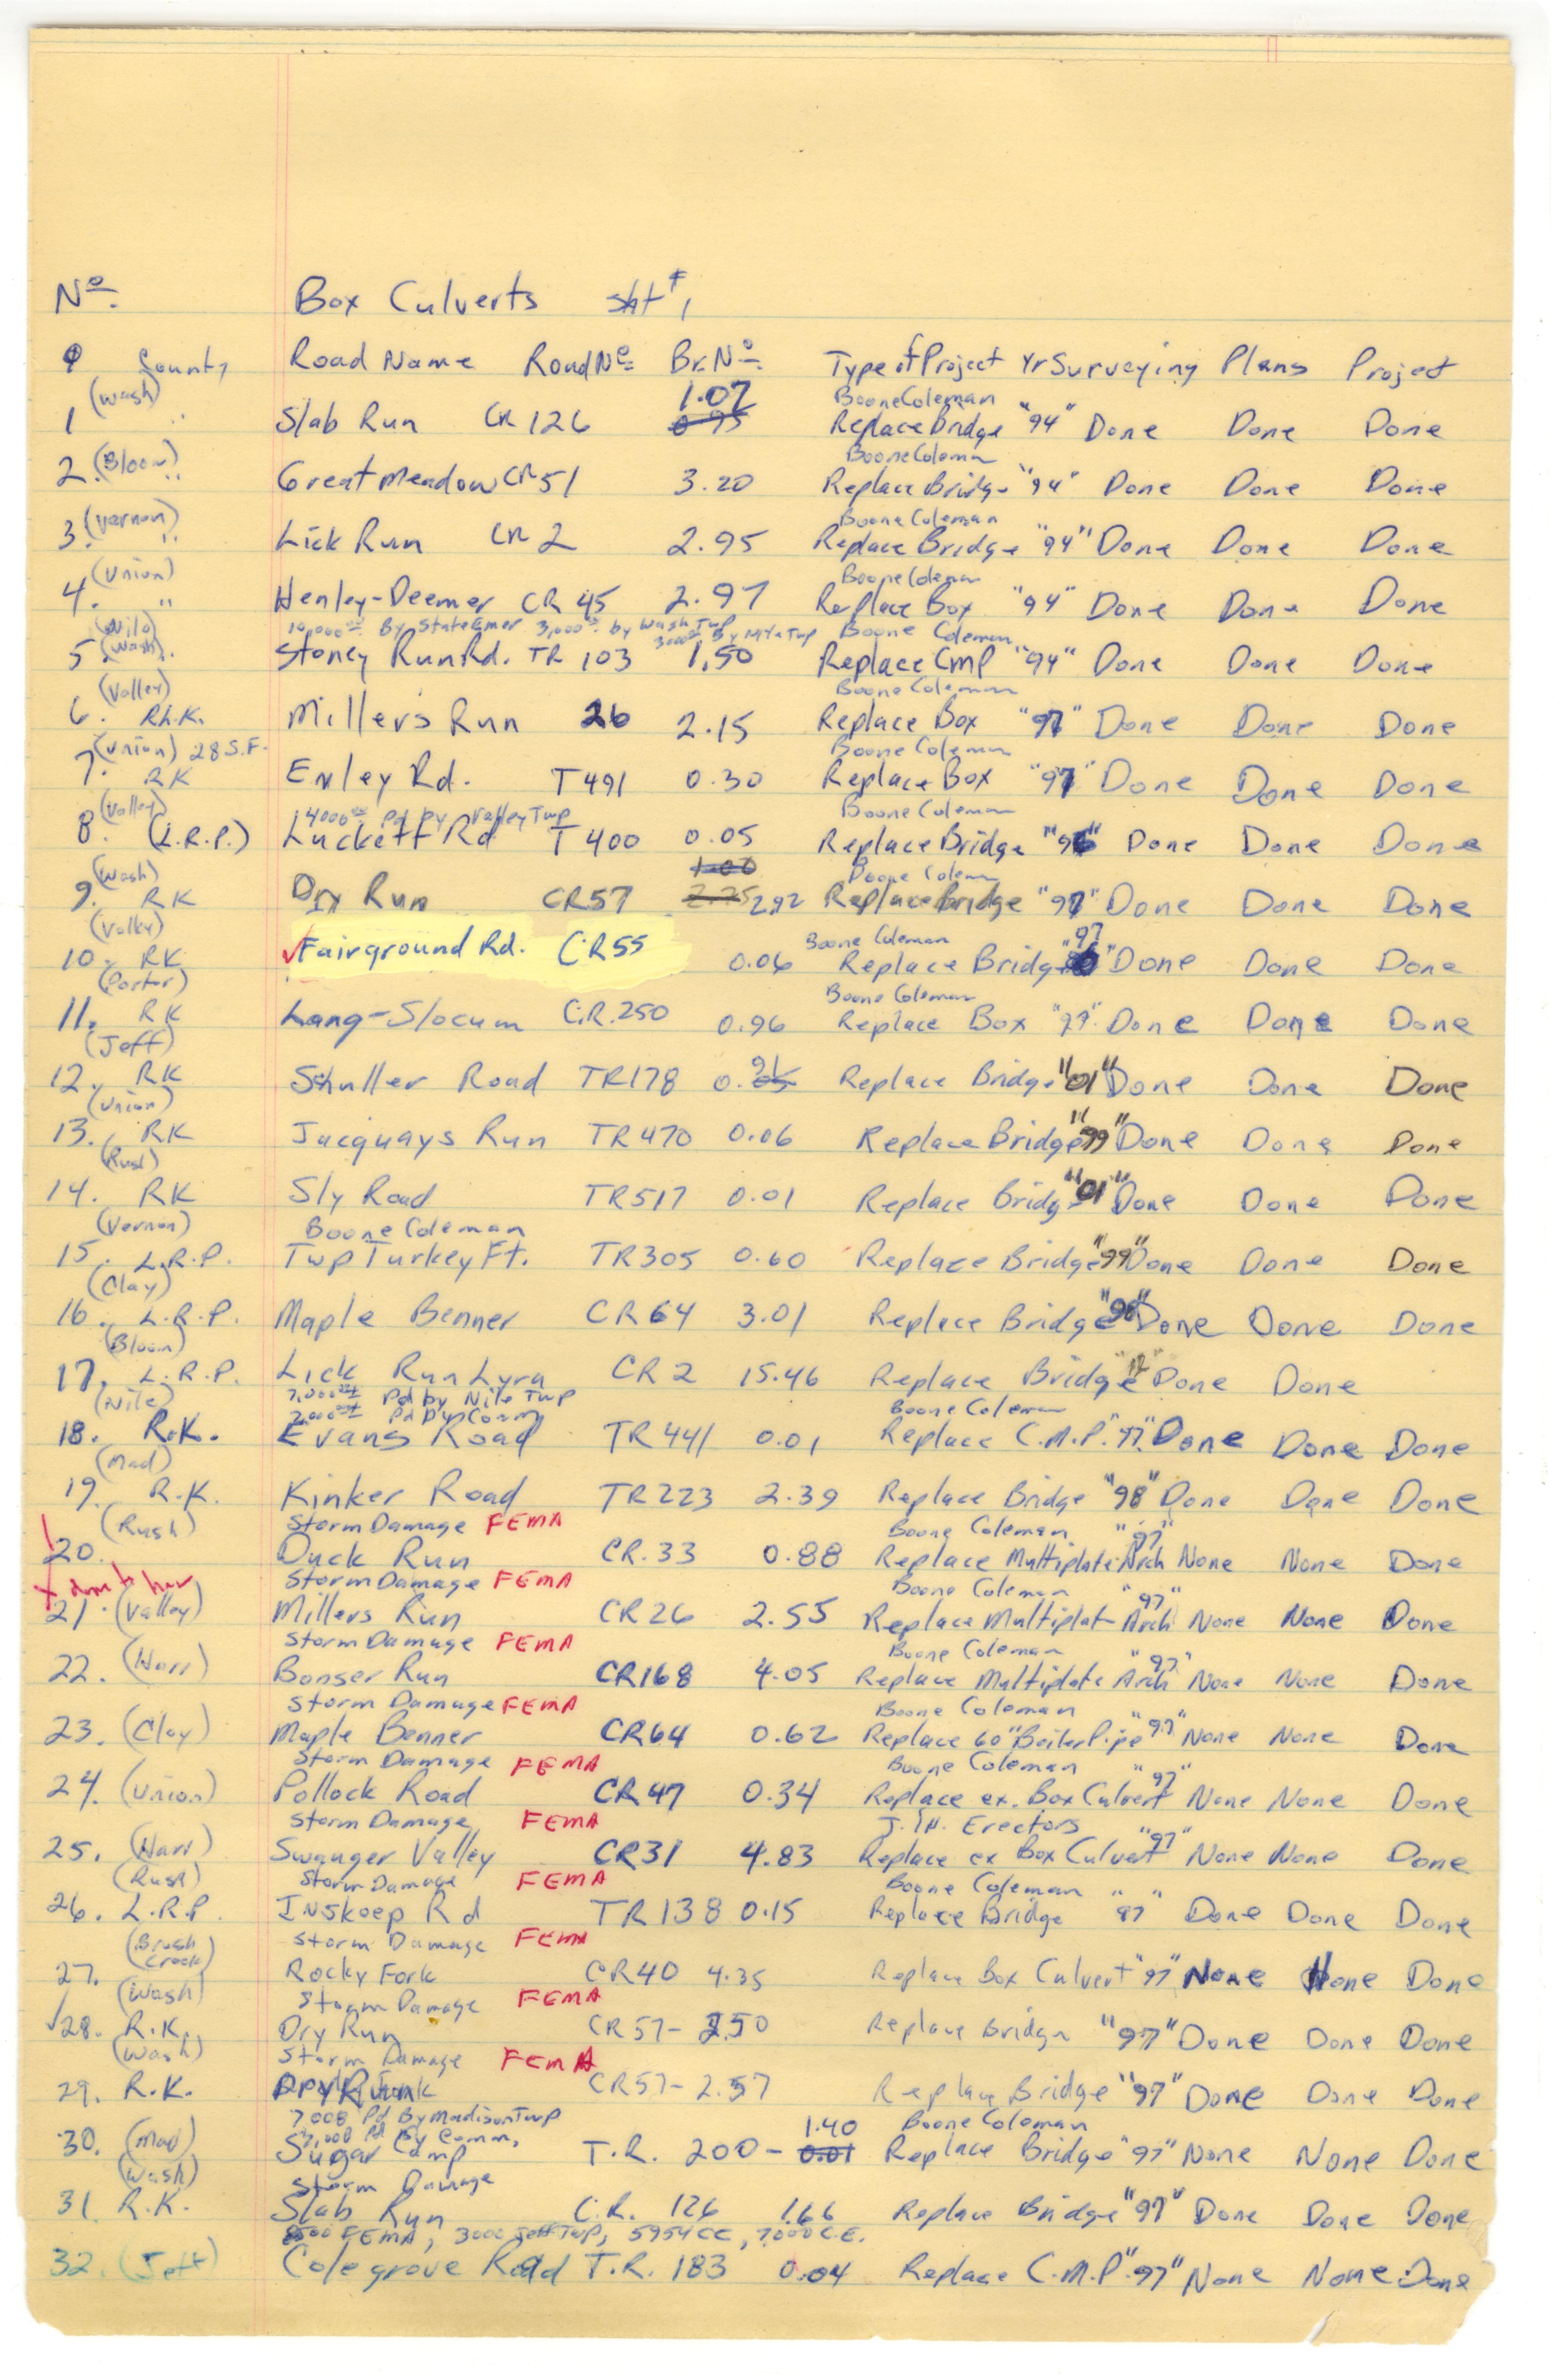 No. Box Culverts sht #1
County Road Name Road No. Br. No. Type of Project Yr Surveying Plans Project
(Wash) 1.07 Boone Coleman
1 Slab Run CR 126 0.95 Replace Bridge "94" Done Done Done
(Bloom) Boone Coleman
2. " Great Meadow CR 51 3.20 Replace Bridge "94" Done Done Done
(Vernon) Boone Coleman
3. " Lick Run CR 2 2.95 Replace Bridge "94" Done Done Done
(Union) Boone Coleman
4. " Henley-Deemer CR 45 2.97 Replace Box "94" Done Done Done
(Nile) 10,000.00 By State Emer 3,000.00 by Wash Twp 3000.00 By Nile Twp Boone Coleman
5. (Wash). Stoney Run Rd. TR 103 1.50 Replace CMP "94" Done Done Done
(Valley) Boone Coleman
6. R.K. Millers Run 26 2.15 Replace Box "97" Done Done Done
(Union) 28 S.F. Boone Coleman
7. RK Enley Rd. T491 0.30 Replace Box "97" Done Done Done
(Valley) 14000.00 Pd by Valley Twp Boone Coleman
8. (L.R.P.) Luckett Rd T 400 0.05 Replace Bridge "96" Done Done Done
(Wash) 1.00 Boone Coleman
9. RK Dry Run CR57 2.25 2.92 Replace Bridge "97" Done Done Done
(Valley) Boone Coleman "97
10. RK Fairground Rd. CR55 0.06 Replace Bridge " Done Done Done
(Porter) Boone Coleman
11. RK Lang-Slocum C.R. 250 0.96 Replace Box "97" Done Done Done
(Jeff) 91
12. RK Shuller Road TR178 0.05 Replace Bridge "01" Done Done Done
(Union)
13. RK Jacquays Run TR470 0.06 Replace Bridge "99" Done Done Done
(Rush)
14. RK Sly Road TR517 0.01 Replace Bridge "01" Done Done Done
(Vernon) Boone Coleman
15. L.R.P. Twp Turkey Ft. TR305 0.60 Replace Bridge "99" Done Done Done
(Clay)
16. L.R.P. Maple Benner CR 64 3.01 Replace Bridge "98" Done Done Done
(Bloom)
17. L.R.P. Lick Run Lyra CR 2 15.46 Replace Bridge "12" Done Done
(Nile) 7,000.00 Pd by Nile Twp
2,000.00 Pd by Comm Boone Coleman
18. R.K. Evans Road TR 441 0.01 Replace C.M.P. "97" Done Done Done
(Mad)
19. R.K. Kinker Road TR223 2.39 Replace Bridge "98" Done Done Done
(Rush) Storm Damage FEMA Boone Coleman "97"
20. Duck Run CR. 33 0.88 Replace Multiplate Arch None None Done
Storm Damage FEMA Boone Coleman "97"
21. (Valley) Millers Run CR26 2.55 Replace Multiplat Arch None None Done
Storm Damage FEMA Boone Coleman "97"
22. (Harr) Bonser Run CR168 4.05 Replace Multiplate Arch None None Done
Storm Damage FEMA Boone Coleman
23. (Clay) Maple Benner CR64 0.62 Replace 60" Boiler Pipe "97" None None Done
Storm Damage FEMA Boone Coleman "97"
24. (Union) Pollock Road CR47 0.34 Replace ex. Box Culvert None None Done
Storm Damage FEMA J.H. Erectors
25. (Harr) Swauger Valley CR31 4.83 Replace ex Box Culvert "97" None None Done
(Rush) Storm Damage FEMA Boone Coleman
26. L.R.P. Inskeep Rd TR138 0.15 Replace Bridge "97" Done Done Done
(Brush Creek) Storm Damage FEMA
27. Rocky Fork CR40 4.35 Replace Box Culvert "97" None None Done
(Wash) Storm Damage FEMA
28. R.K. Dry Run CR57- 2.50 Replace Bridge "97" Done Done Done
(Wash) Storm Damage FEMA
29. R.K. Dry Run CR57- 2.57 Replace Bridge "97" Done Done Done
7,000 Pd By Madison Twp 1.40 Boone Coleman
7,000 Pd By Comm.
30. (Mad) Sugar Camp T.R. 200- 0.01 Replace Bridge "97" None None Done
(Wash) Storm Damage
31. R.K. Slab Run C.R. 126 1.66 Replace Bridge "97" Done Done Done
8500 FEMA, 3000 Jeff Twp, 5954 CC, 7000 C.E.
32. (Jeff) Colegrove Road T.R. 183 0.04 Replace C.M.P. "97" None None Done